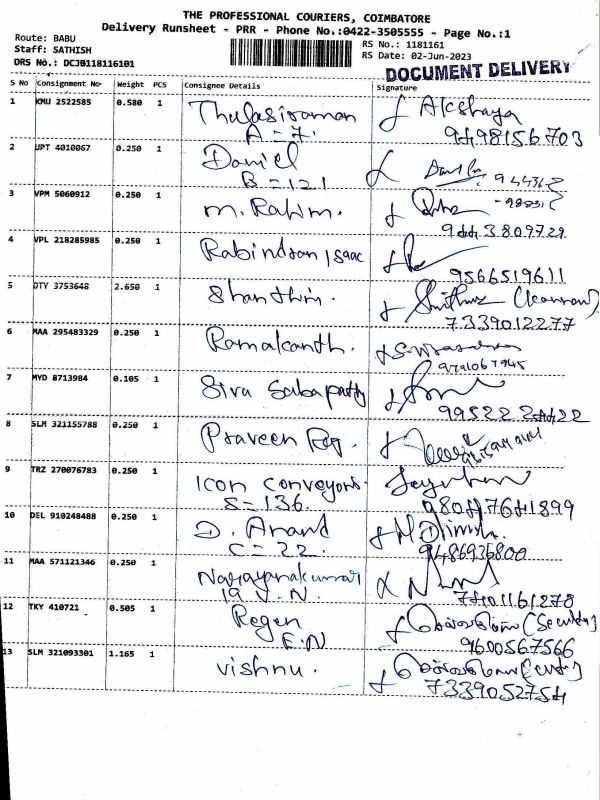 THE PROFESSIONAL COURIERS, COIMBATORE
Delivery Runsheet - PRR - Phone No.:0422-3505555 - Page No.:1
Route: BABU
Staff: SATHISH
DRS No.: DCJB118116101
RS No.: 1181161
RS Date: 02-Jun-2023
DOCUMENT DELIVERY
S No Consignment No Weight PCS Consignee Details Signature
1 KMU 2522585 0.580 1 Thulasiraman Akshaya
A = 7. 9498156703
2 JPT 4010067 0.250 1 Daniel
B = 121
3 VPM 5060912 0.250 1 M. Rahim.
9443809729
4 VPL 218285985 0.250 1 Rabindran Isaac
9566519611
5 DTY 3753648 2.650 1 Shanthini.
7339012277
6 MAA 295483329 0.250 1 Ramakanth.
9791067945
7 MYD 8713984 0.105 1 Siva Sabapathy
99522 24422
8 SLM 321155788 0.250 1 Praveen
9 TRZ 270076783 0.250 1 Icon Conveyors
S = 136. 98047641899
10 DEL 910248488 0.250 1 D. Anand
C = 22. 9486936800
11 MAA 571121346 0.250 1 Narayanakumar
19 V.N. 7401161278
12 TKY 410721 0.505 1 Regen
E.N 9600567566
13 SLM 321093301 1.165 1 Vishnu.
7339052754